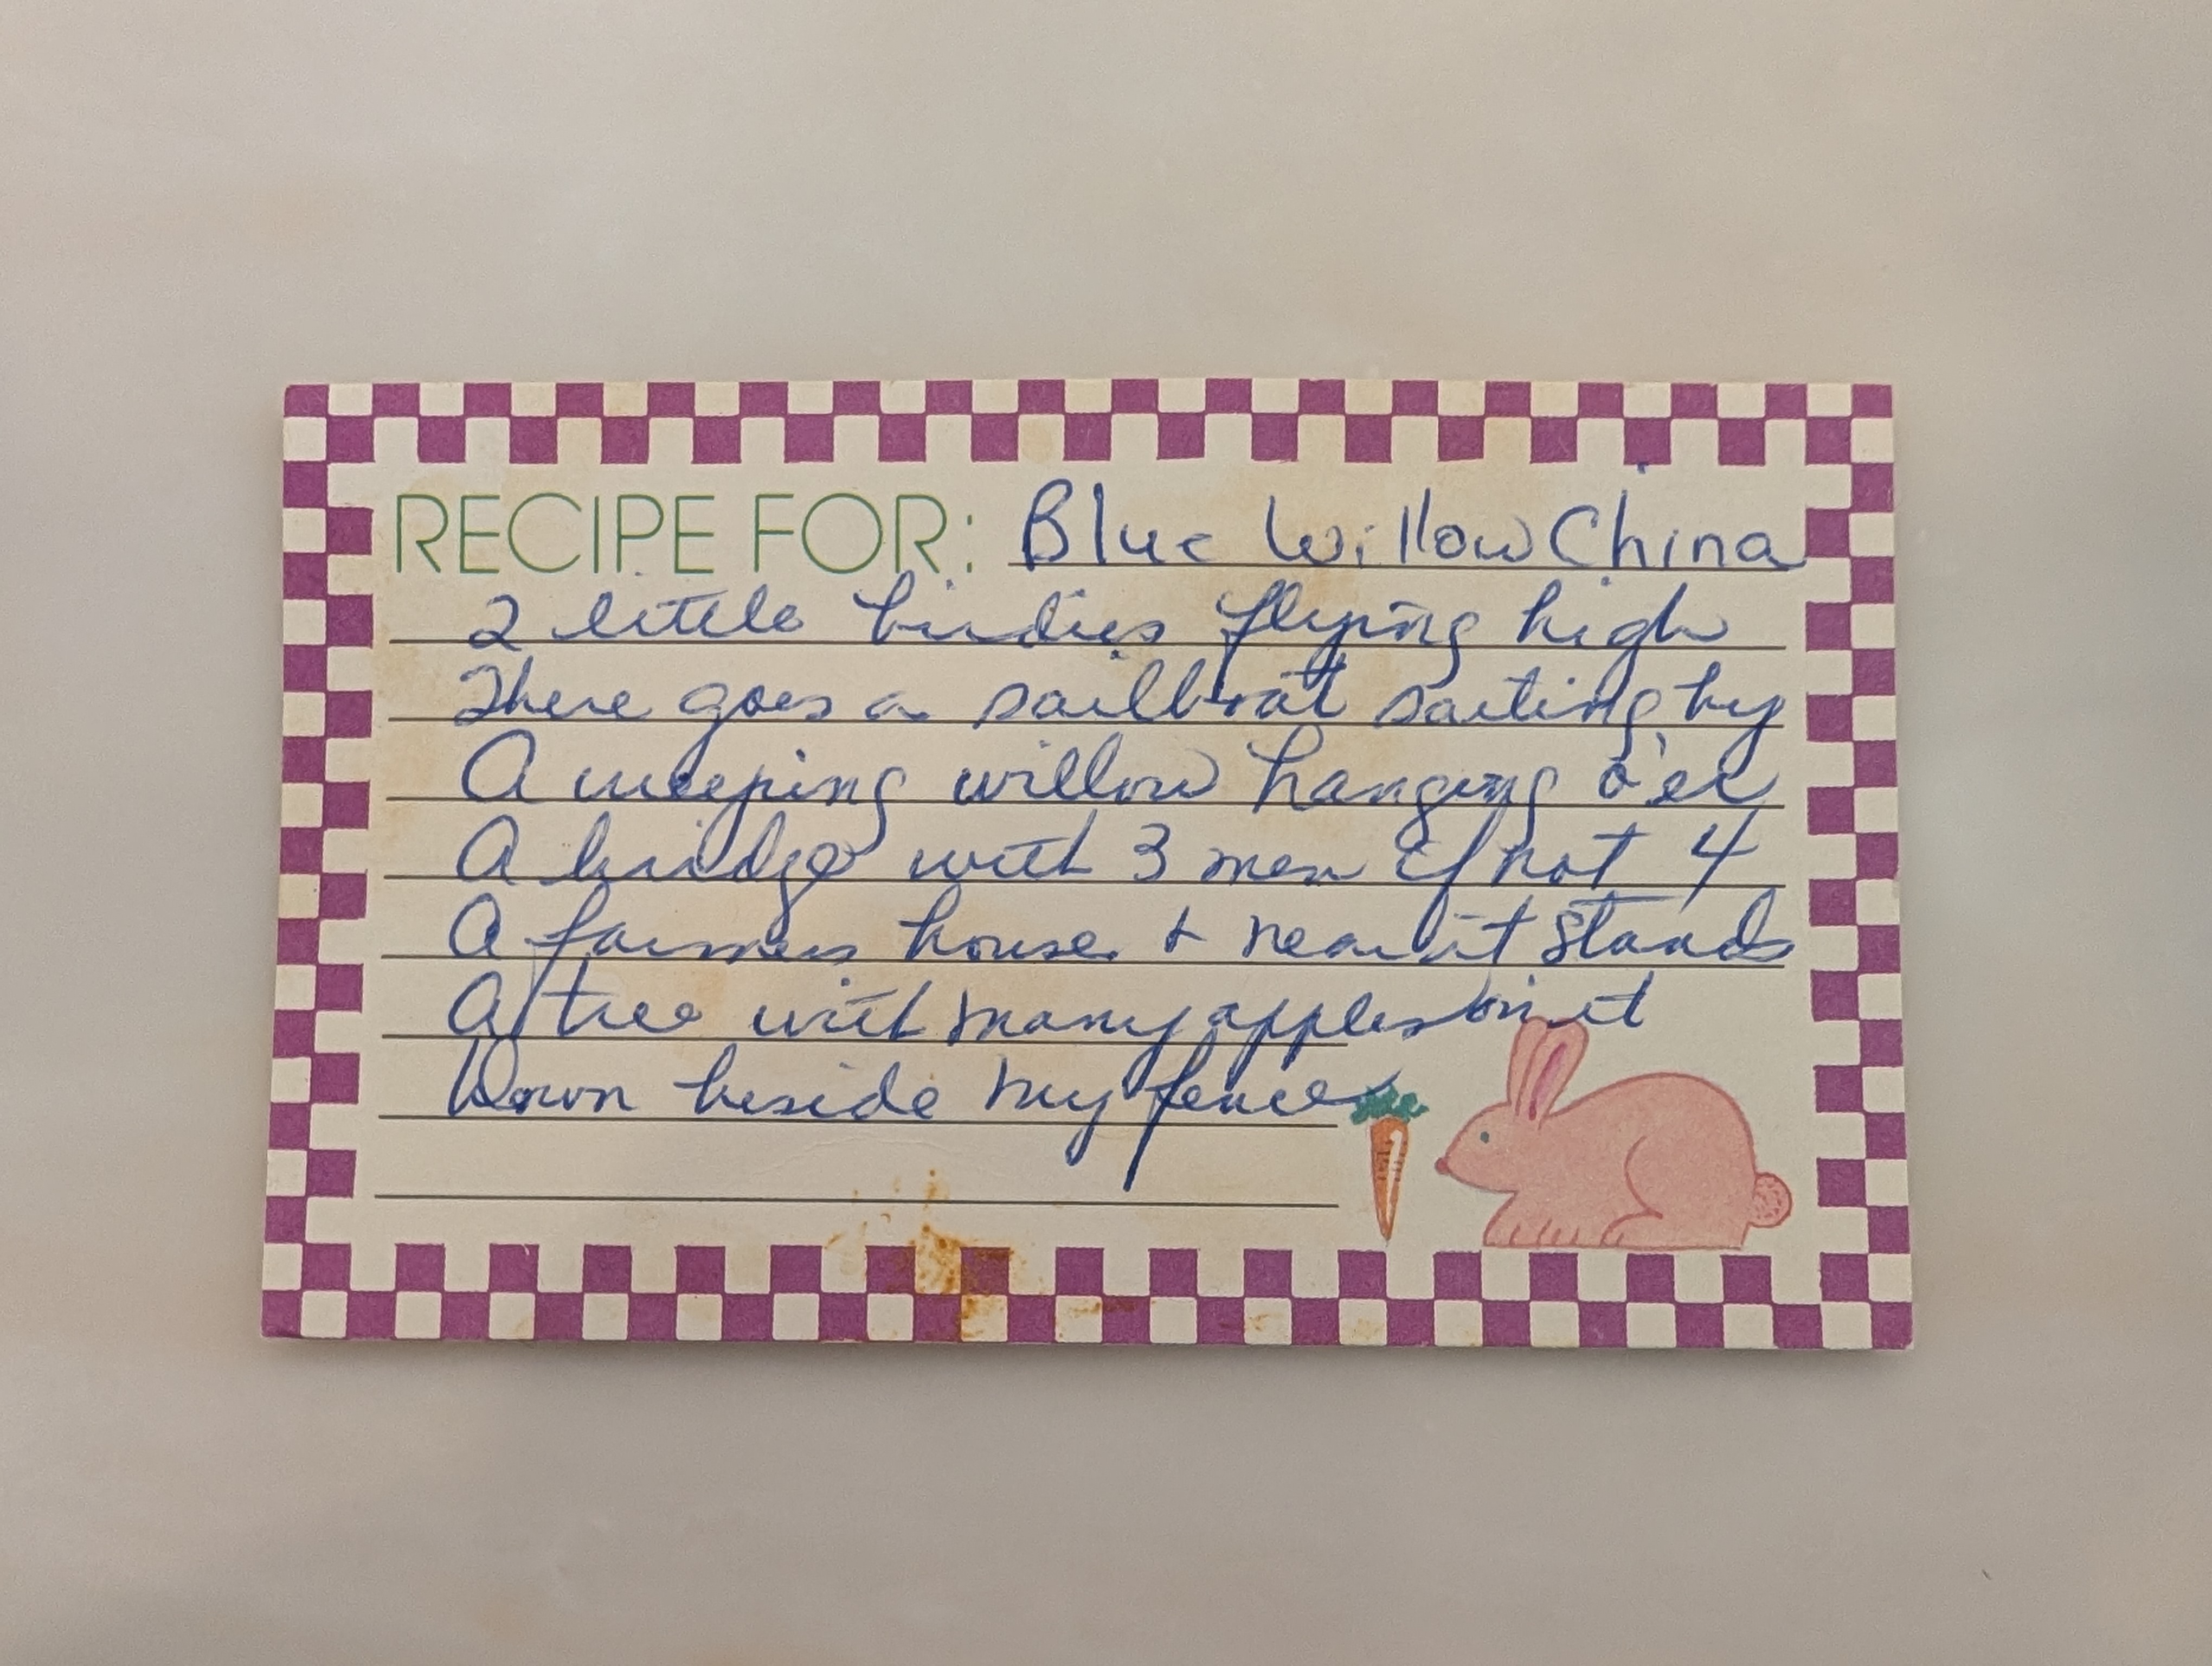 RECIPE FOR: Blue Willow China
2 little birdies flying high
There goes a sailboat sailing by
A weeping willow hanging o'er
A bridge with 3 men if not 4
A farmers house & near it stands
A tree with many apples on it
Down beside my fence